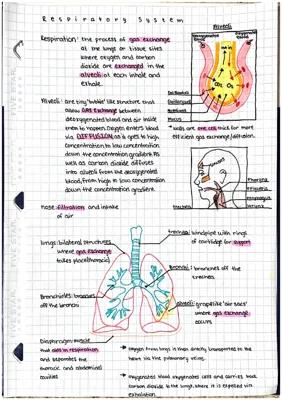 Respiratory System
Respiration: the process of gas exchange
at the lungs or tissue sites
where oxygen and carbon
dioxide are exchanged in the
alveoli at each inhale and
exhale.
Alveoli
air in
CO₂ O₂
Mucus
* walls are one cell thick for more
efficient gas exchange/diffusion.
Alveoli: are tiny "bubble" like structure that
allow GAS exchange between
deoxygenated blood and air inside
them to happen. Oxygen enters blood
via DIFFUSION as it gets to high
concentration to low concentration
down the concentration gradient. As
well as carbon dioxide diffuses
into alveoli from the deoxygenated
blood, from high to low concentration
down the concentration gradient.
Pharynx
Larynx
Trachea
Nose: filtration and intake
of air
Trachea: windpipe with rings
of cartilage for support
lungs: bilateral structures
where gas exchange
takes place (thoracic)
Bronchi: branches off the
trachea
Bronchioles: branches
off the bronchi
Alveoli: grapelike 'air sacs'
where gas exchange
occurs
Diaphragm: muscle
that aids in respiration
and separates the
thoracic and abdominal
cavities
→ Oxygen from lungs is then directly transported to the
heart via the pulmonary veins.
→ Oxygenated blood oxygenates cells and carries back
carbon dioxide to the lungs, where it is expelled via
exhalation.
FIVE STAR
FIVE STAR
FIVE STAR